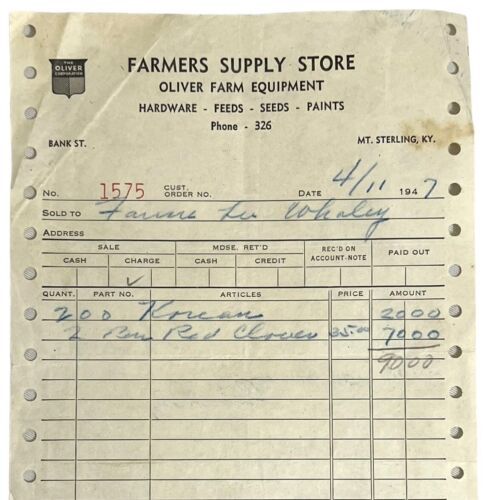 THE
OLIVER
CORPORATION
FARMERS SUPPLY STORE
OLIVER FARM EQUIPMENT
HARDWARE - FEEDS - SEEDS - PAINTS
Phone - 326
BANK ST. MT. STERLING, KY.
No. 1575 CUST. ORDER NO. DATE 4/11 1947
SOLD TO Lee Whaley
ADDRESS
SALE MDSE. RET'D REC'D ON ACCOUNT-NOTE PAID OUT
CASH CHARGE CASH CREDIT
✓
QUANT. PART NO. ARTICLES PRICE AMOUNT
200 Korean 2000
2 Red Clover 35.00 7000
9000